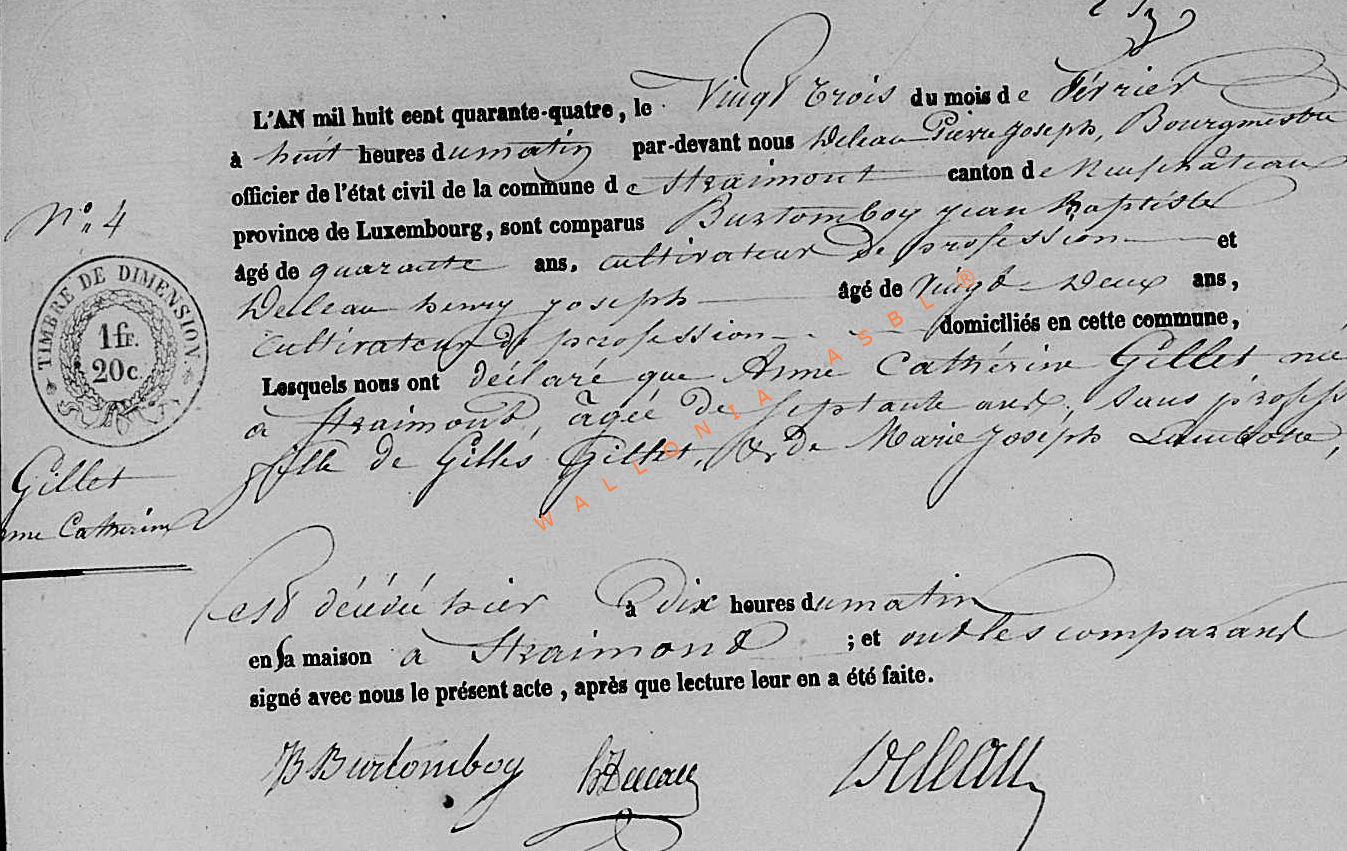 L'AN mil huit cent quarante-quatre, le Vingt trois du mois de Février
à huit heures du matin par-devant nous Delleau Pierre Joseph, Bourgmestre
officier de l'état civil de la commune de Straimont canton de Neufchâteau
province de Luxembourg, sont comparus Burtomboy Jean Baptiste
âgé de quarante ans, cultivateur de profession et
Delleau henry joseph âgé de Vingt Deux ans,
Cultivateur de profession domiciliés en cette commune,
Lesquels nous ont déclaré que Anne Catherine Gillet née
à Straimont, âgée de septante ans, sans profess
fille de Gilles Gillet, & de Marie Joseph
est décédé hier à dix heures du matin
en sa maison à Straimont ; et ont les comparant
signé avec nous le présent acte, après que lecture leur en a été faite.
N° 4
TIMBRE DE DIMENSION
1 fr.
20 c
Gillet
nne Catherine
JB Burtomboy hDeleau Delleau
WALLONIA ASBL ®